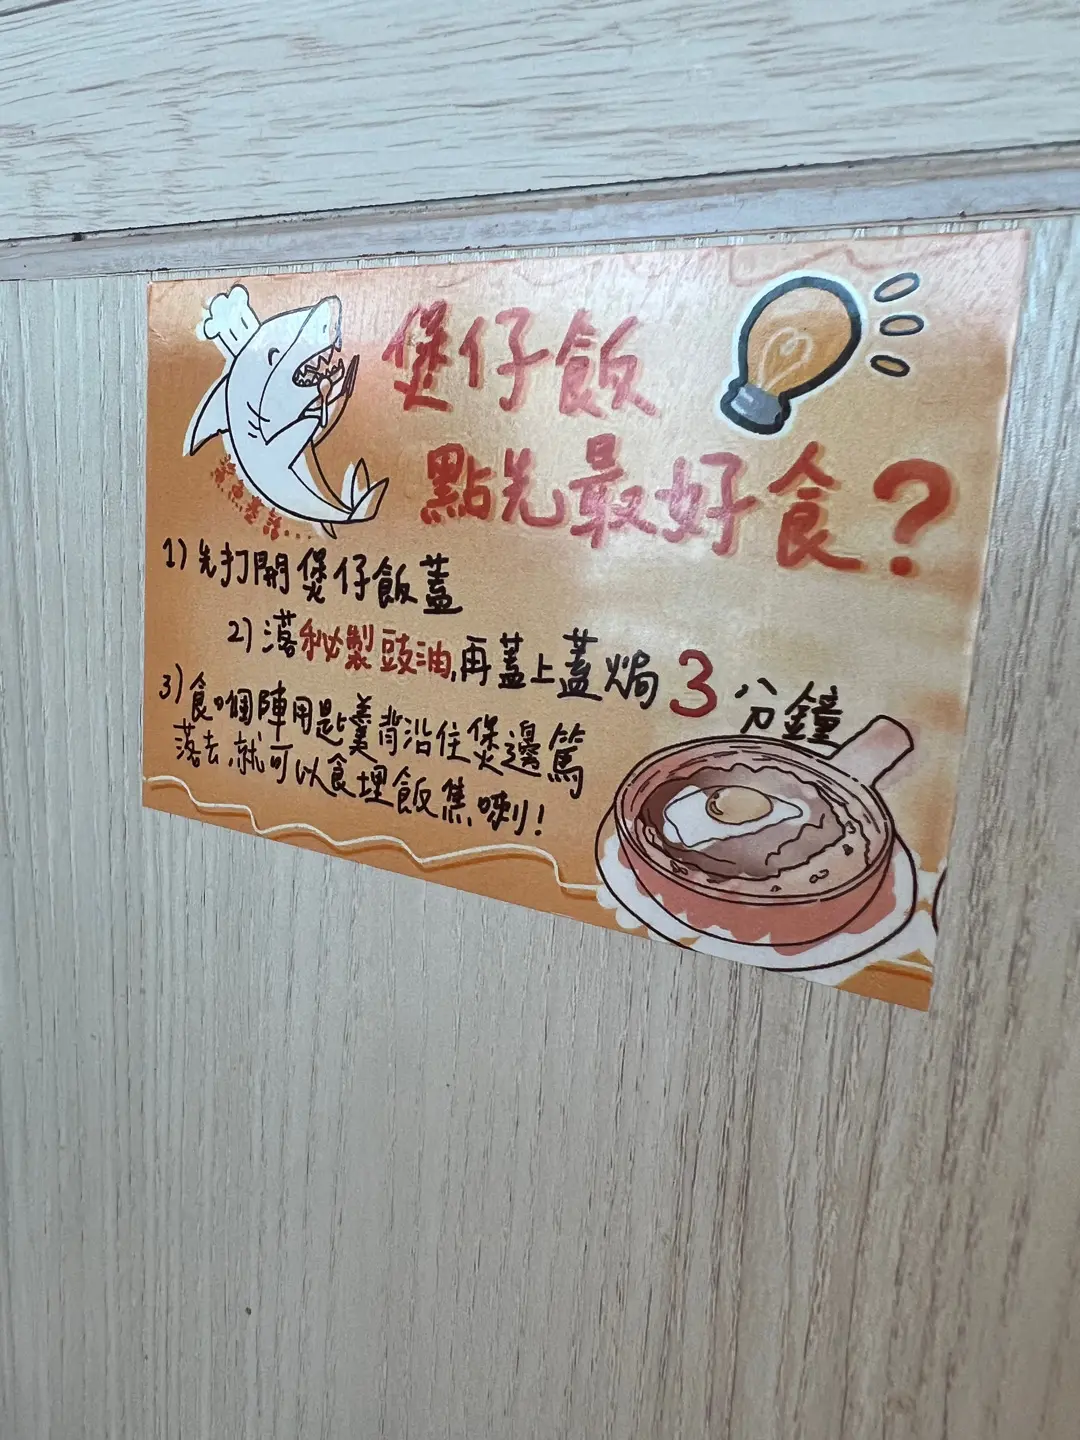 煲仔飯
點先最好食?
1) 先打開煲仔飯蓋
2) 落秘製豉油,再蓋上蓋焗3分鐘
3) 食嗰陣用匙羹背沿住煲邊篤
落去,就可以食埋飯焦喇!